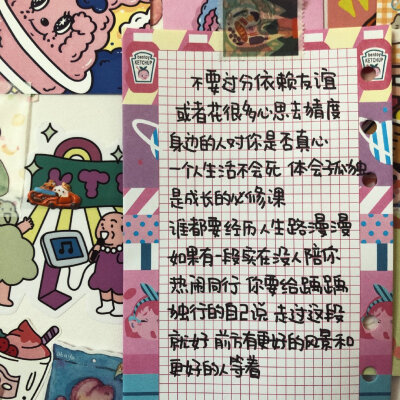 KETCHUP
KETCHUP
不要过分依赖友谊
或者花很多心思去猜度
身边的人对你是否真心
一个人生活不会死 体会孤独
是成长的必修课
谁都要经历人生路漫漫
如果有一段实在没人陪你
热闹同行 你要给踽踽
独行的自己说 走过这段
就好 前方有更好的风景和
更好的人等着